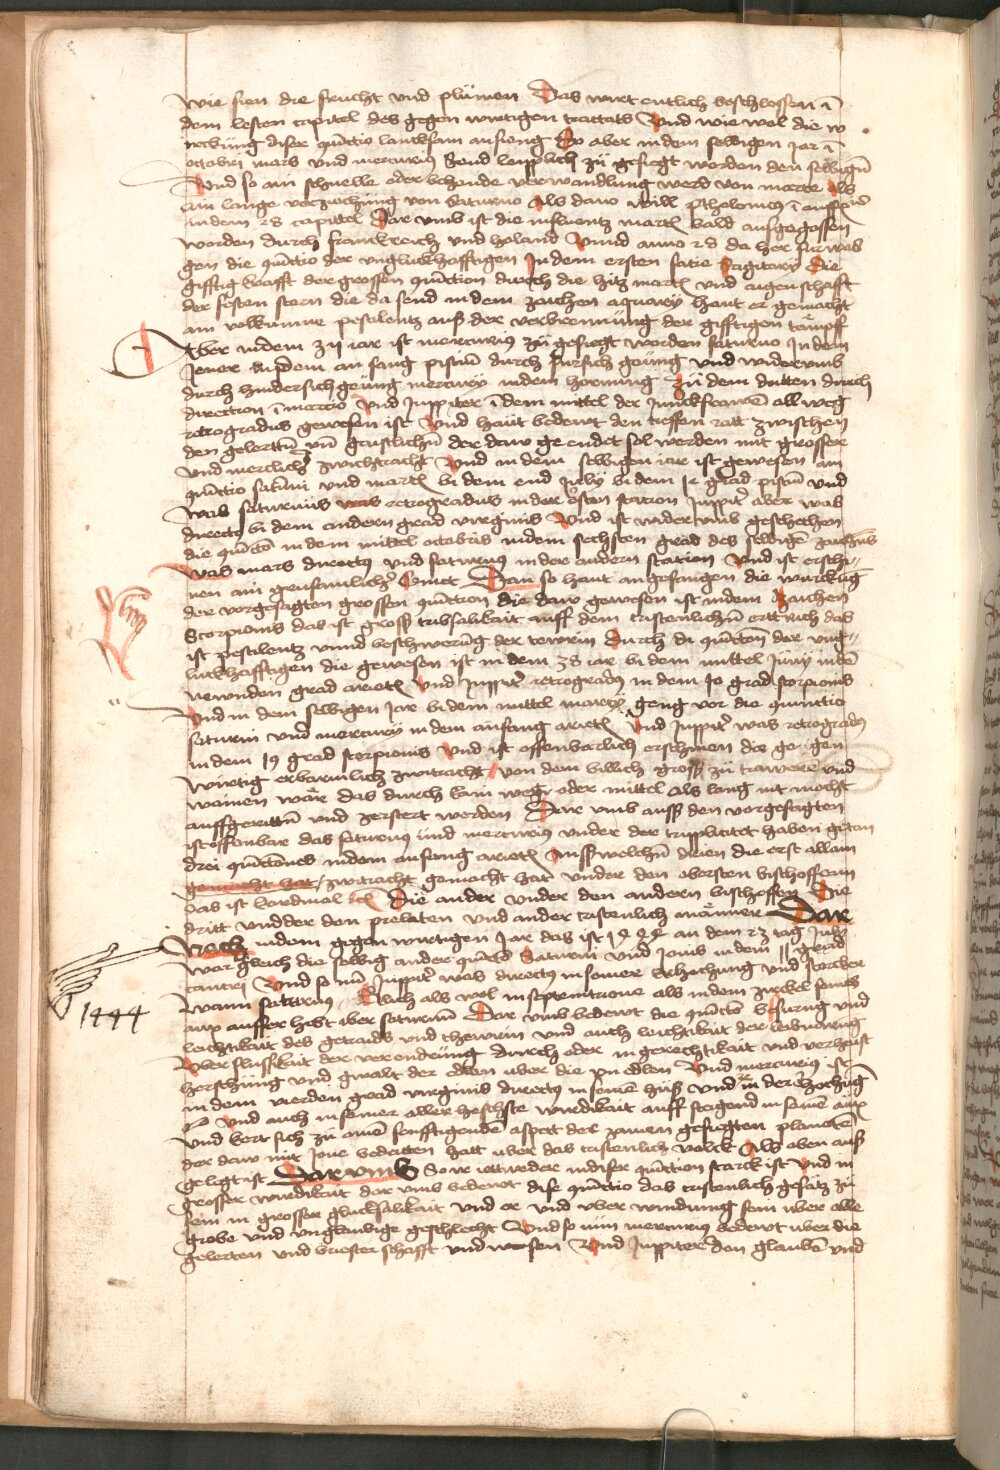 wie sien die frucht vnd plůmen Das wirt entlich beschlossen ī
dem lesten capitel des gegen wirtigen tractats Vnd wie wol die w
irckung diser qūctio lancksam anfieng So aber in dem selbigen jar ī
octobri mars vnd mercurius send leiplich zů gefiegt worden den selbigñ
Vnd so ain schnelle oder behende verwandlung werd von marte Als
ain lange verziechung von Saturno Als dano will ptholomeus ī
in dem 28 capittel Dar vmb ist die influentz martis bald ausgegossen
worden durch franckreich vnd holand Vnnd anno 28 da her für was
gen die qūctio der vngluckhafftigen In dem ersten facie Sagitarÿ Die
gifftig krafft der grossen qūction durch die hitz martis vnd aigenschafft
der festen stern die da send in dem zaichen aquarÿ haut er gemacht
ain volkumne pestelentz auß der verbrennung der gifftigen tämpff
Aber in dem zij iar ist mercurius zů gefiegt worden saturno In dem
Jener an dem an fang pisciū durch fürsich geüng vnd widervmb
durch hindersich geüng mercurÿ in dem hornung Zů dem dritten durch
direction ī marcio Vnd Juppiter ī dem mittel der Junckfrawē allweg
retrogradus gewesen ist Vnd haut bedewt den tieffen ratt zwischen
den gelertñ vñ geistlichñ der daw ge endet sol werden mit grosser
vnd mercklicher zwichtracht Vnd in dem selbigen iar ist gewesen ain
qūctio saturni vnd martis bi dem end Julÿ bi dem 12 grad pisciū vnd
was saturnus was retrogradus in der ersten station Juppiter aber was
directus bi dem andern grad virginis Vnd ist wider vmb geschechen
die qūctio in dem mittel octobris in dem sechsten grad des selbigē zaichens
was mars directus vnd saturnus in der andern station Vnd ist erschi-
nen ain grusamlicher Comet Dan so haut angefangen die wirckūg
der vorgesagten grossen qūction die daw gewesen ist in dem zaichen
Scorpionis das ist groß tribsalikait auff dem cristenlichñ ertrich das
ist pestilentz vnnd beschwerūg der tewrin Durch di qūction der vng-
luckhafftigen die gewesen ist in dem 38 iar bi dem mittel Junÿ in dē
newnden grad arietis Vnd Juppiter retrogradus in dem 10 grad scorpionis
Vnd in dem selbigen Jar bi dem mittel marcÿ geng vor die quinctio
saturni vnd mercurÿ in dem anfang arietis Vnd Juppiter was retrogradus
in dem 19 grad scorpionis Vnd ist offenbarlich erschinen die gegen
wirtig erbarmlich zwitracht Von dem billich groß zů trawren vnd
wainen wär das durch kain weg oder mittel als lang nit mocht
aussgerettñ vnd zerstert werden Dar vmb auss den vorgesagten
ist offenbar das saturnus vnd mercurius vnder der tripplicitet haben getan
drei qūctiones in dem anfang arietis Auß welchñ drien die erst allain
gemacht hat / zwitracht gemacht hat vnder den obersten bischoffen
das ist kardinal etc Die ander vnder den andern bischoffen Die
dritt vndder den prelaten vnd ander cristenlich männer Dar
Nach in dem gegen wirtigen Jar das ist 1444 an dem 23 tag Julÿ
war gleich die selbig ander qūctio Saturni vnd Jouis in dem 11 grad
cancri Vnd so nū Juppiter was directus in seiner Erhochung vnd stercker
wann saturnus Gleich als wol in septentrione als in dem zirckel seines
aux ausser hebt iber saturnū Dar vmb bedewt die qūctio besserung vnd
leichtikait des getraids vnd thewrin vnd auch leichtikait der
Vber flussikait der verendrung durch oder in gerechtikait vnd verhaist
herschung vnd gwalt der edlen vber die vn edlen Vnd mercurius ist
in dem vierden grad virginis directus in seinē huß vnd in der erhochūg
Vnd auch in seiner aller hechste wirdikait auff steigend in seinē aux
vnd kert sich zů ainē senfftigendē aspect der zwaien gesagten planeten
der daw mit Joue bedeitten hatt vber das cristenlich volck Als oben auß
gelegt ist Dar vmb So ir ettweder in diser qūction starck ist Vnd in
grosser wirdikait dar vmb bedewt dise qūctio das cristenlich gesätz zů
sein in grosser glucksalikait vnd er vnd vber windung sein vber alle
grobe vnd vnglaubige geschlecht Vnd so nun mercurius bedewt vber die
gelerten vnd briester schafft vnd wesen Vnd Juppiter den glaubē vnd
1444